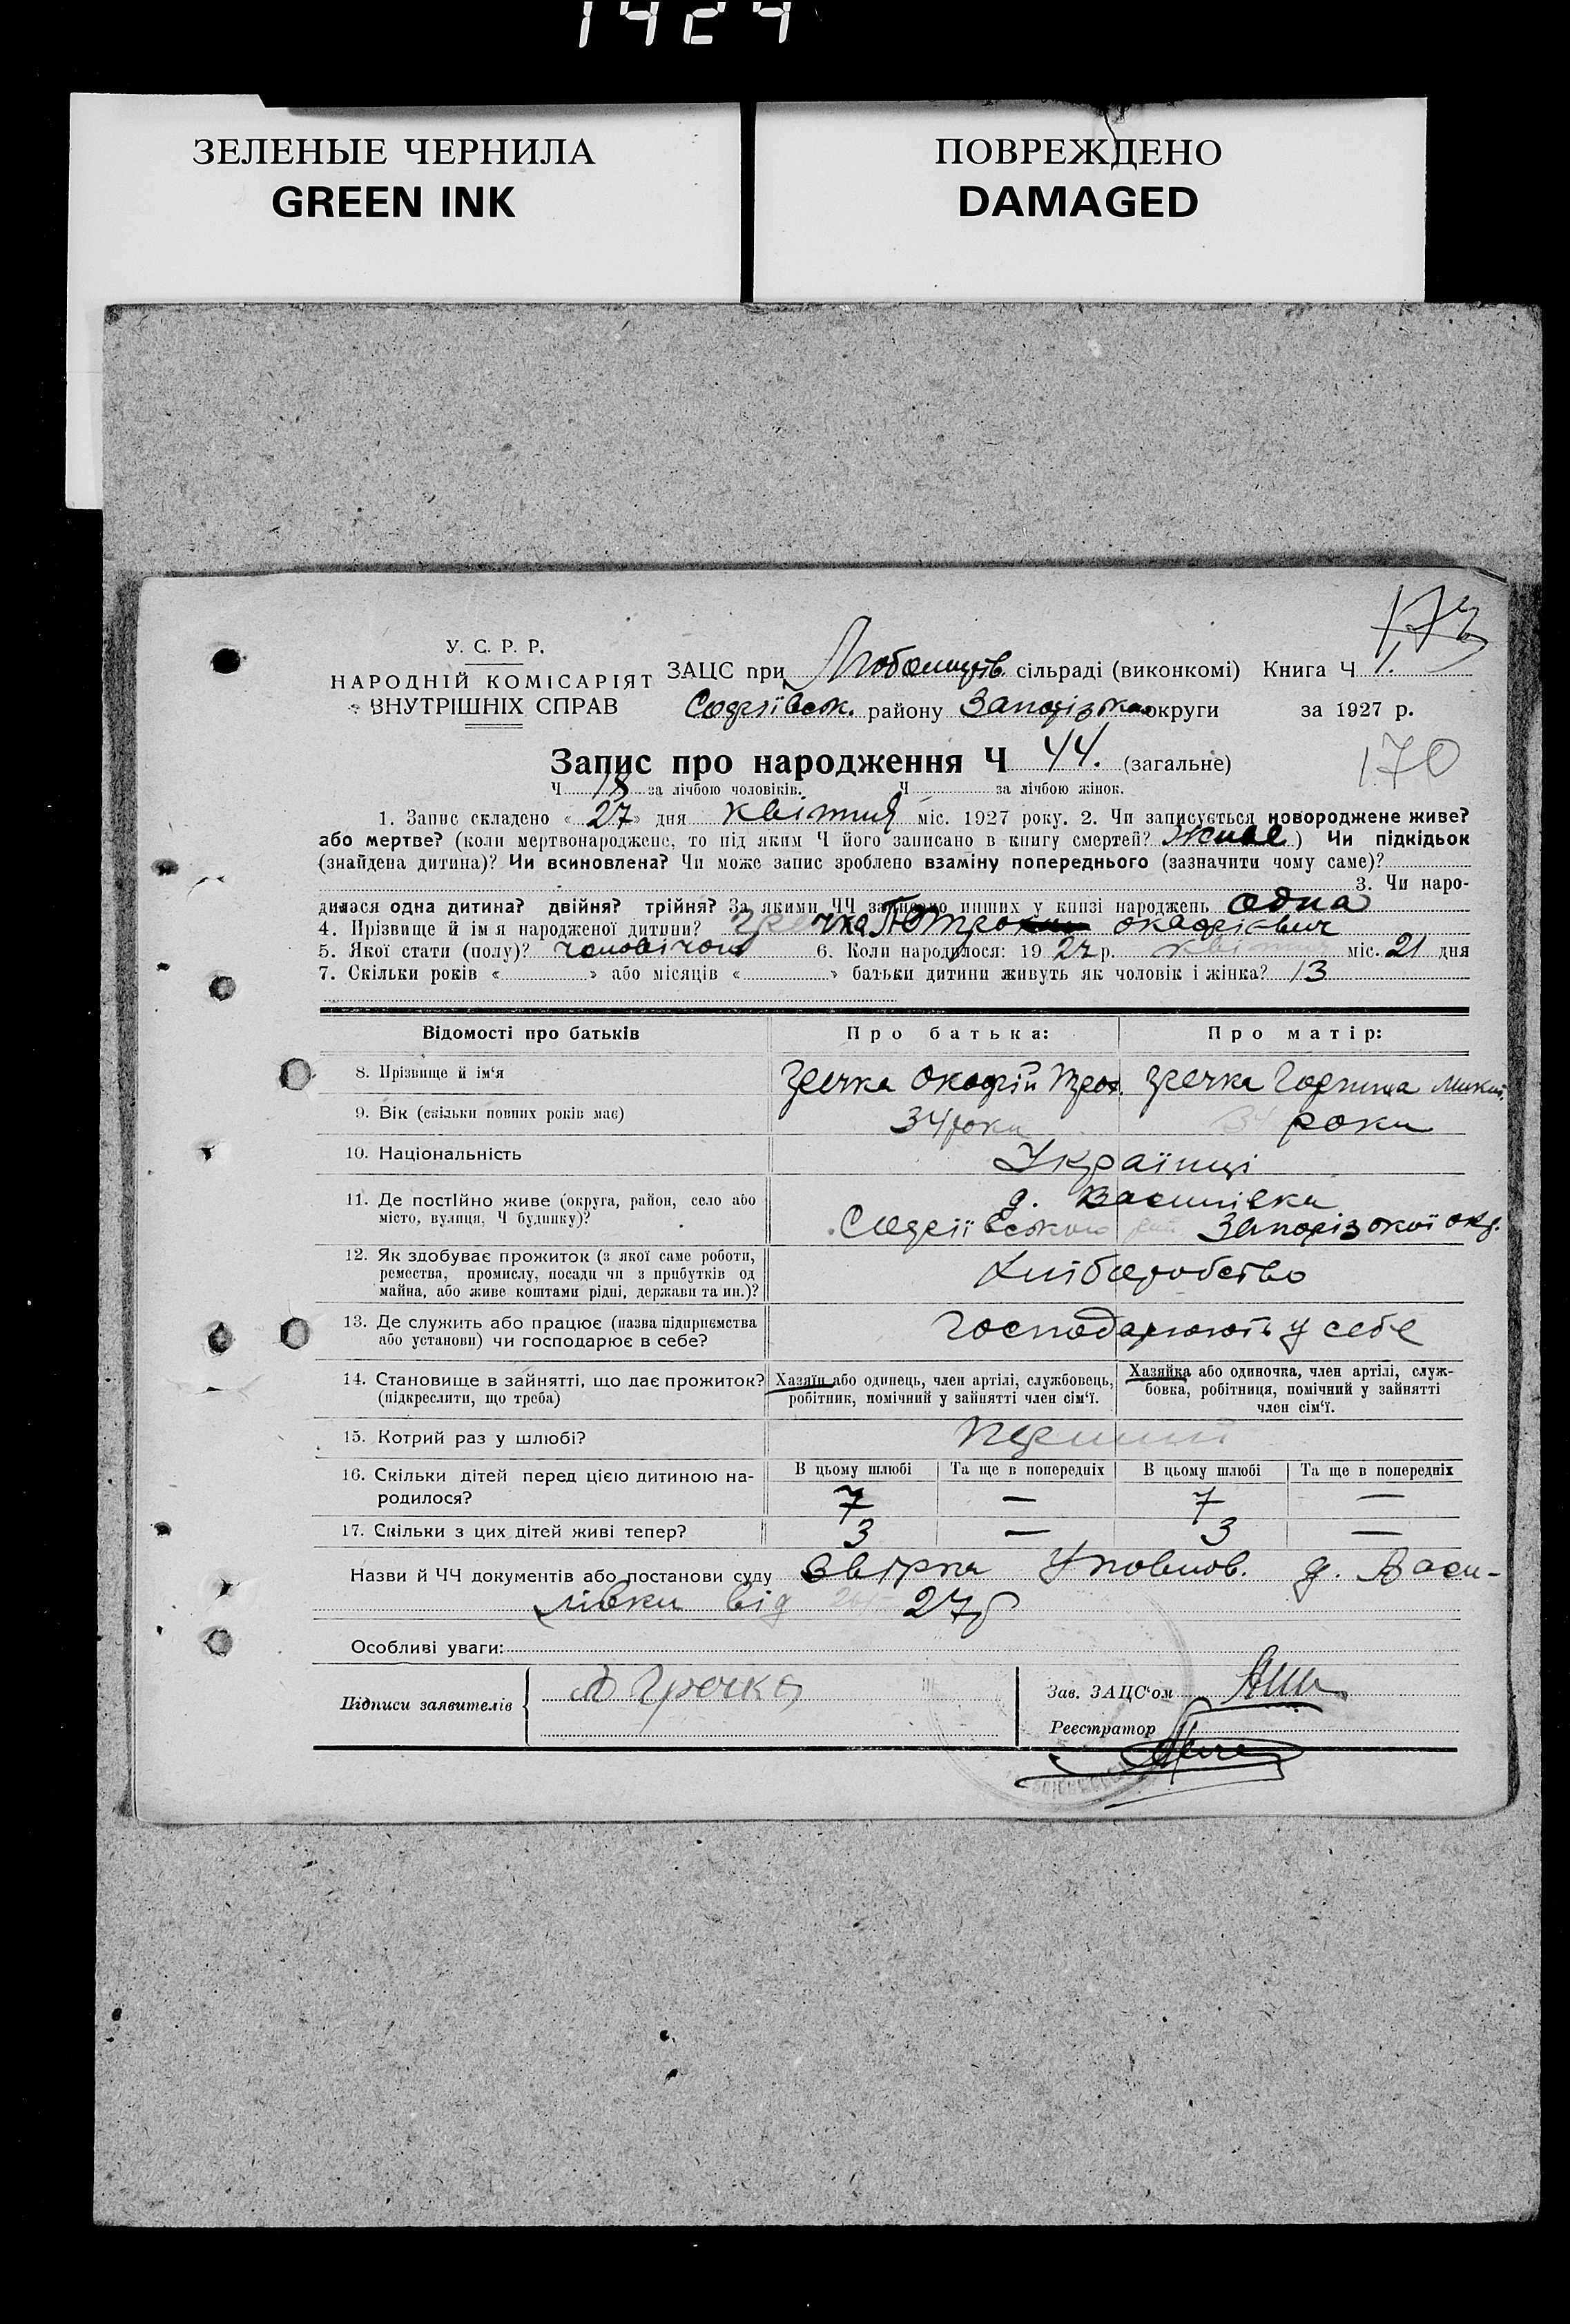 1424
ЗЕЛЕНЫЕ ЧЕРНИЛА
GREEN INK
ПОВРЕЖДЕНО
DAMAGED
173
У. С. Р. Р.
НАРОДНІЙ КОМІСАРІЯТ
ВНУТРІШНІХ СПРАВ
ЗАЦС при сільраді (виконкомі) Книга Ч 1.
району Запорізької округи за 1927 р.
Запис про народження Ч 44. (загальне)
170
Ч 18 за лічбою чоловіків. Ч за лічбою жінок.
1. Запис складено « 27 » дня квітня міс. 1927 року. 2. Чи записується новороджене живе?
або мертве? (коли мертвонароджене, то під яким Ч його записано в книгу смертей? живе) Чи підкідьок
(знайдена дитина)? Чи всиновлена? Чи може запис зроблено взаміну попереднього (зазначити чому саме)?
3. Чи наро-
дилася одна дитина? двійня? трійня? За якими ЧЧ записано инших у книзі народжень одна
4. Прізвище й ім я народженої дитини? Гречка
5. Якої стати (полу)? чоловічої 6. Коли народилося: 19 27 р. квітня міс. 21 дня
7. Скільки років « » або місяців « » батьки дитини живуть як чоловік і жінка? 13
Відомості про батьків Про батька: Про матір:
8. Прізвище й ім‘я Гречка Гречка Горпина Микит.
9. Вік (скільки повних років має) 34 роки 34 роки
10. Національність Українці
11. Де постійно живе (округа, район, село або
місто, вулиця, Ч будинку)?
д. Василівка
Запорізької окр.
12. Як здобуває прожиток (з якої саме роботи,
ремества, промислу, посади чи з прибутків од
майна, або живе коштами рідні, держави та ин.)?
Хліборобство
13. Де служить або працює (назва підприємства
або установи) чи господарює в себе?
Господарюють у себе
14. Становище в зайнятті, що дає прожиток?
(підкреслити, що треба)
Хазяїн або одинець, член артілі, службовець,
робітник, помічний у зайнятті член сім‘ї.
Хазяйка або одиночка, член артілі, служ-
бовка, робітниця, помічний у зайнятті
член сім‘ї.
15. Котрий раз у шлюбі? перший
16. Скільки дітей перед цією дитиною на-
родилося?
В цьому шлюбі Та ще в попередніх В цьому шлюбі Та ще в попередніх
7 — 7 —
17. Скільки з цих дітей живі тепер? 3 — 3 —
Назви й ЧЧ документів або постанови суду Уповнов. д. Васи-
лівки від 27р
Особливі уваги:
Підписи заявителів Гречка
Зав. ЗАЦС‘ом
Реєстратор